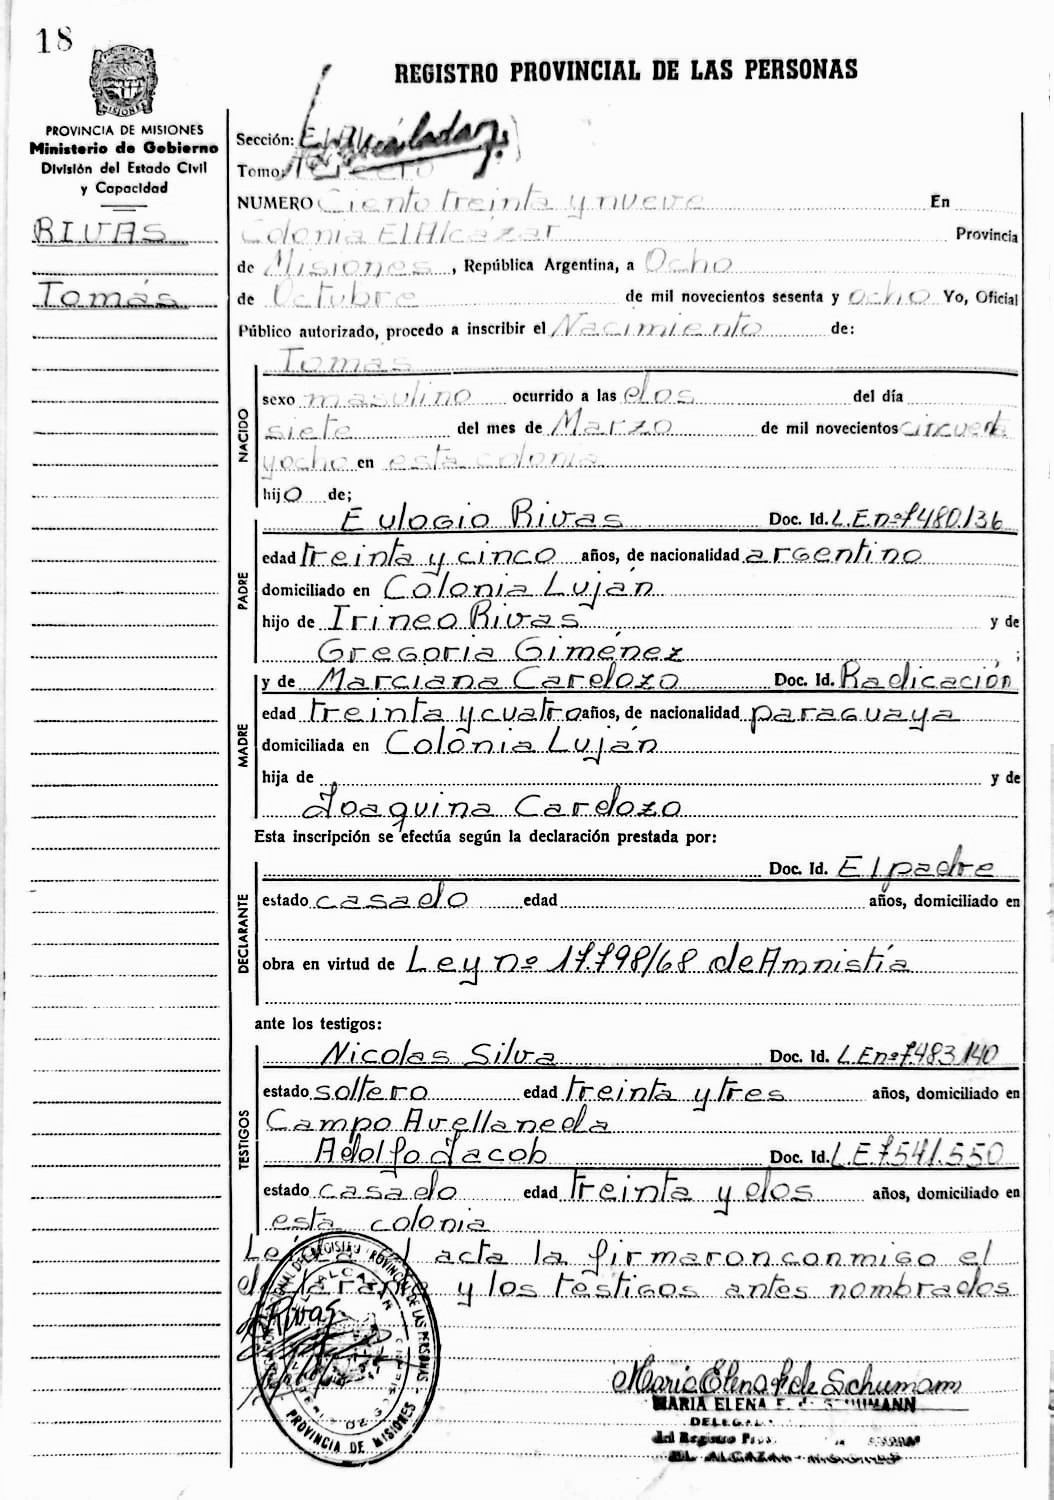 18
REGISTRO PROVINCIAL DE LAS PERSONAS
PROVINCIA DE MISIONES
Ministerio de Gobierno
División del Estado Civil
y Capacidad
RIVAS
Tomás
Sección:
Tomo:
NUMERO Ciento treinta y nueve En
Colonia El Alcazar Provincia
de Misiones, República Argentina, a Ocho
de Octubre de mil novecientos sesenta y ocho Yo, Oficial
Público autorizado, procedo a inscribir el Nacimiento de:
Tomas
NACIDO
sexo masculino ocurrido a las dos del día
siete del mes de Marzo de mil novecientos cincuenta
y ocho en esta colonia
hijo de;
PADRE
Eulogio Rivas Doc. Id. L.E.nº7480.136
edad treinta y cinco años, de nacionalidad argentino
domiciliado en Colonia Luján
hijo de Irineo Rivas y de
Gregoria Giménez ;
MADRE
y de Marciana Cardozo Doc. Id. Radicación
edad treinta y cuatro años, de nacionalidad paraguaya
domiciliada en Colonia Luján
hija de y de
Joaquina Cardozo
Esta inscripción se efectúa según la declaración prestada por:
DECLARANTE
Doc. Id. El padre
estado casado edad años, domiciliado en
obra en virtud de Ley nº 17.798/68 de Amnistía
ante los testigos:
TESTIGOS
Nicolas Silva Doc. Id. L.E nº7.483.140
estado soltero edad treinta y tres años, domiciliado en
Campo Avellaneda
Adolfo Jacob Doc. Id. L.E.7.541.550
estado casado edad treinta y dos años, domiciliado en
esta colonia
acta la firmaron conmigo el
y los testigos antes nombrados
Rivas
PROVINCIA DE MISIONES
Maria Elena de Schumann
MARIA ELENA F. de SCHUMANN
DELEGADA
del Registro
EL ALCAZAR - MISIONES